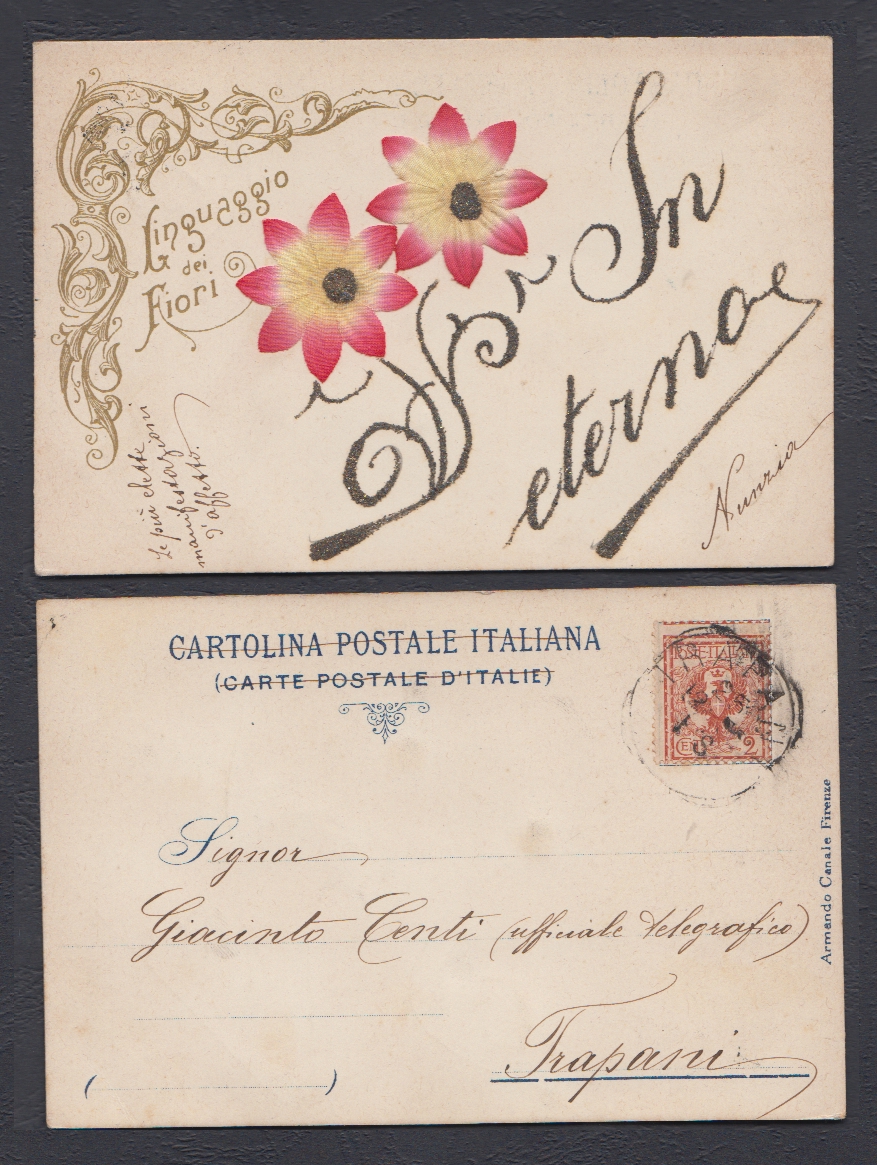 Linguaggio
dei
Fiori
In
eterno
Le più elette
manifestazioni
d'affetto.
Nunzia
CARTOLINA POSTALE ITALIANA
(CARTE POSTALE D'ITALIE)
POSTE ITALIANE
TRAPANI
CEN 2
Signor
Giacinto Centi (ufficiale telegrafico)
Trapani
Armando Canale Firenze